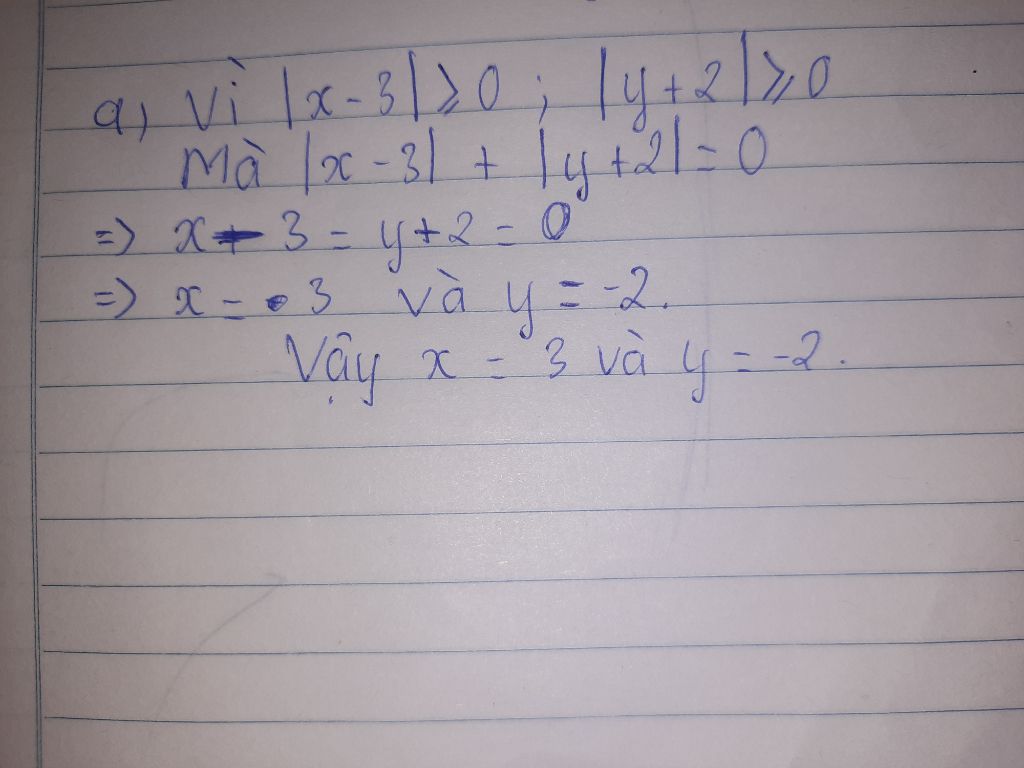 a) Vì |x - 3| ⩾ 0 ; |y + 2| ⩾ 0
Mà |x - 3| + |y + 2| = 0
=> x - 3 = y + 2 = 0
=> x = 3 và y = -2.
Vậy x = 3 và y = -2.